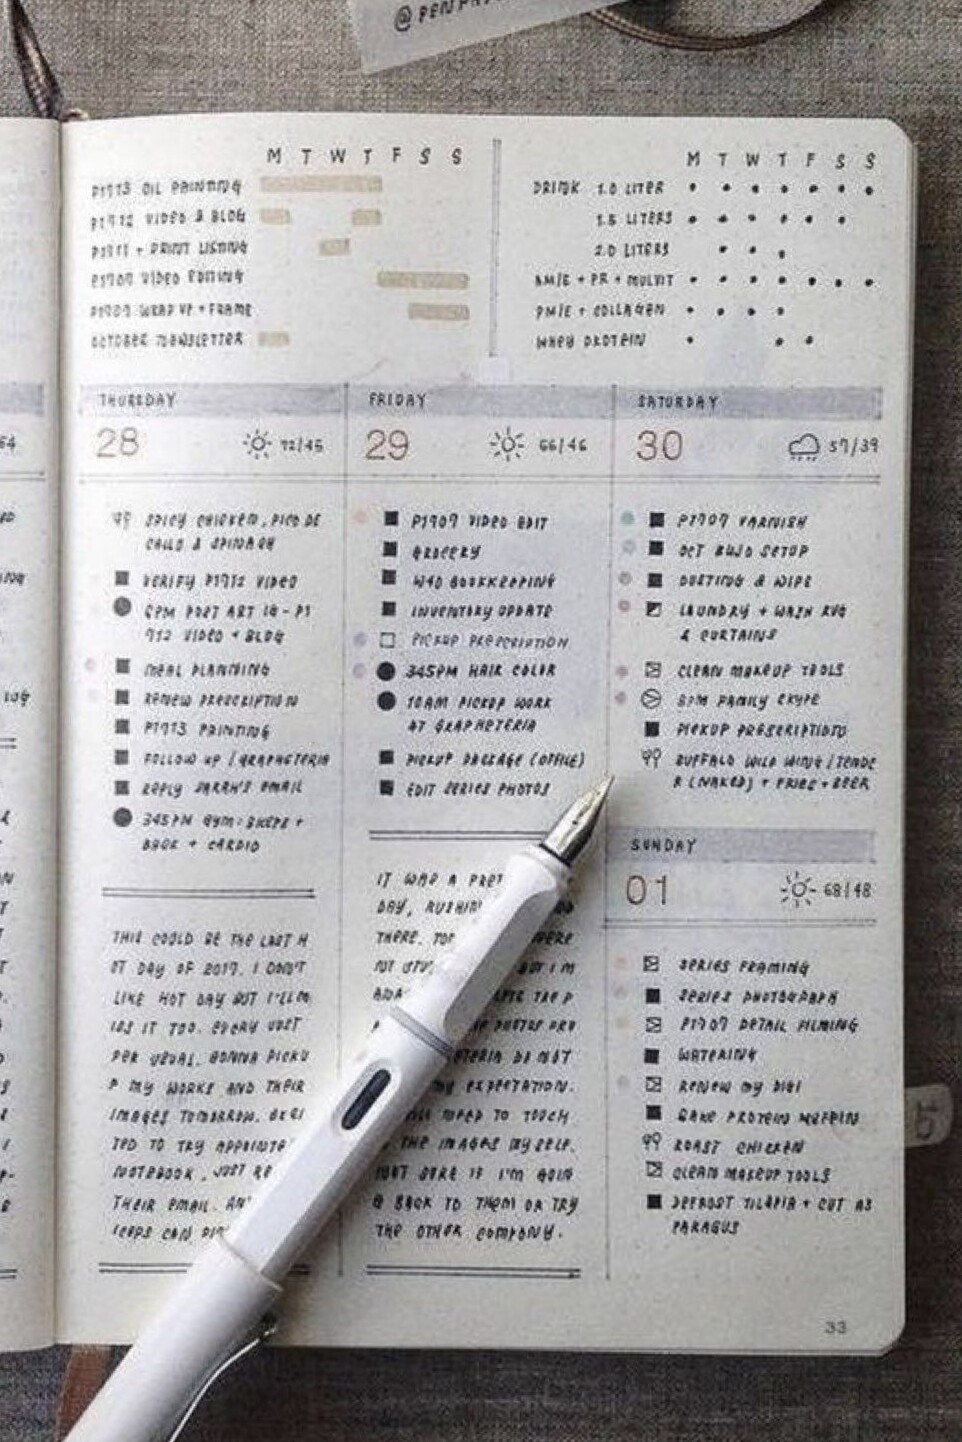 @PENPA
M T W T F S S
P1913 OIL PAINTING
P1912 VIDEO & BLOG
P1911 + PRINT LISTING
P1909 VIDEO EDITING
P1909 WRAP UP + FRAME
OCTOBER NEWSLETTER
M T W T F S S
DRINK 1.0 LITER
1.5 LITERS
2.0 LITERS
AM/E + PR + MULVIT
PM/E + COLLAGEN
WHEY PROTEIN
THURSDAY
28 72/45
SPICY CHICKEN, PICO DE
& SPINACH
VERIFY P1912 VIDEO
6PM POST ART IG - P1
912 VIDEO + BLOG
MEAL PLANNING
RENEW PRESCRIPTION
P1913 PAINTING
FOLLOW UP / GRAPHETERIA
REPLY SARAH'S EMAIL
345PM GYM: BICEPS +
BACK + CARDIO
THIS COULD BE THE LAST H
OT DAY OF 2019. I DON'T
LIKE HOT DAY BUT I'LL M
ISS IT TOO. EVERY JUST
PER USUAL. GONNA PICKU
P MY WORKS AND THEIR
IMAGES TOMORROW. EXCI
TED TO TRY APPOINTE
NOTEBOOK, JUST RE
THEIR EMAIL. AN
ICEPS CAN
FRIDAY
29 66/46
P1909 VIDEO EDIT
GROCERY
W40 BOOKKEEPING
INVENTORY UPDATE
PICKUP PRESCRIPTION
345PM HAIR COLOR
10AM PICKUP WORK
AT GRAPHETERIA
PICKUP PACKAGE (OFFICE)
EDIT SERIES PHOTOS
IT WAS A PRET
DAY, RUSHIN
THERE. TO ERE
BUT I'M
THE P
PHOTOS PRO
ETERIA DO NOT
MY EXPECTATION.
NEED TO TOUCH
THE IMAGES MYSELF.
NOT SURE IF I'M GOIN
G BACK TO THEM OR TRY
THE OTHER COMPANY.
SATURDAY
30 57/39
P1909 VARNISH
OCT BUJO SETUP
DUSTING & WIPE
LAUNDRY + WASH RUG
& CURTAINS
CLEAN MAKEUP TOOLS
8PM FAMILY SKYPE
PICKUP PRESCRIPTIONS
BUFFALO WILD WING / TENDE
R (NAKED) + FRIES + BEER
SUNDAY
01 68/48
SERIES FRAMING
SERIES PHOTOGRAPH
P1909 DETAIL FILMING
WATERING
RENEW MY DIGI
BAKE PROTEIN MUFFINS
ROAST CHICKEN
CLEAN MAKEUP TOOLS
DEFROST TILAPIA + CUT AS
PARAGUS
33